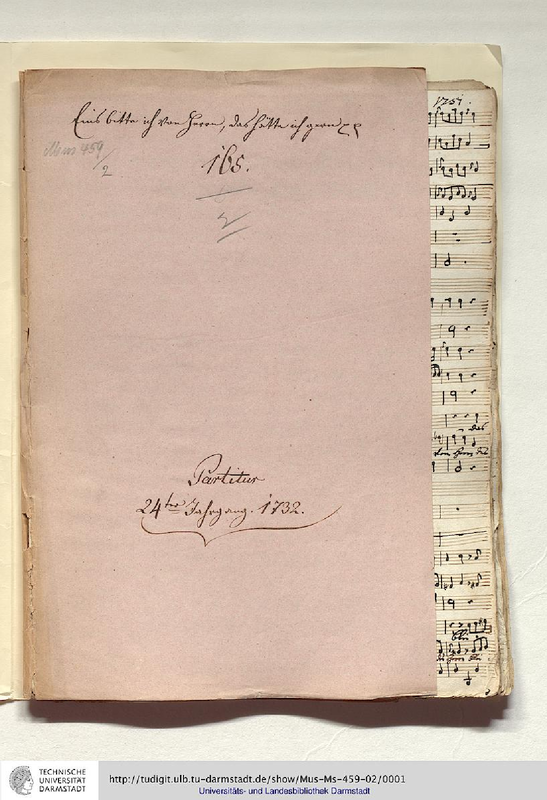 Eins bitte ich vom Herrn, das hätte ich gern
1751.
Mus 459/2
165.
2
Partitur
24ter Jahrgang. 1732.
TECHNISCHE
UNIVERSITÄT
DARMSTADT
http://tudigit.ulb.tu-darmstadt.de/show/Mus-Ms-459-02/0001
Universitäts- und Landesbibliothek Darmstadt